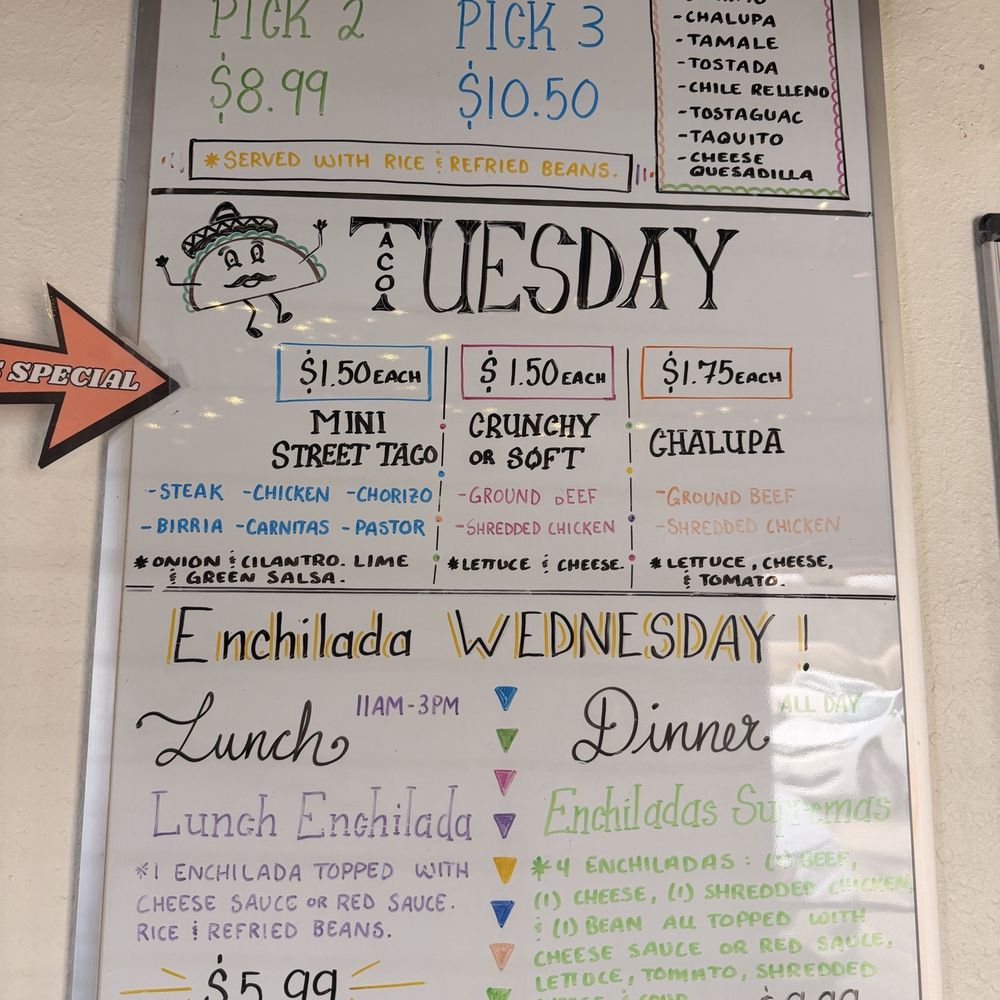 PICK 2
PICK 3
$8.99
$10.50
- CHALUPA
- TAMALE
- TOSTADA
- CHILE RELLENO
- TOSTAGUAC
- TAQUITO
- CHEESE
QUESADILLA
*SERVED WITH RICE & REFRIED BEANS.
TACO TUESDAY
SPECIAL
$1.50 EACH
MINI
STREET TACO
-STEAK -CHICKEN -CHORIZO
-BIRRIA -CARNITAS -PASTOR
*ONION & CILANTRO. LIME
& GREEN SALSA.
$1.50 EACH
CRUNCHY
OR SOFT
-GROUND BEEF
-SHREDDED CHICKEN
*LETTUCE & CHEESE.
$1.75 EACH
CHALUPA
-GROUND BEEF
-SHREDDED CHICKEN
*LETTUCE, CHEESE,
& TOMATO.
Enchilada WEDNESDAY!
Lunch 11AM-3PM
Lunch Enchilada
*1 ENCHILADA TOPPED WITH
CHEESE SAUCE OR RED SAUCE.
RICE & REFRIED BEANS.
$5.99
Dinner ALL DAY
Enchiladas Supremas
*4 ENCHILADAS: (1) BEEF,
(1) CHEESE, (1) SHREDDED CHICKEN,
& (1) BEAN ALL TOPPED WITH
CHEESE SAUCE OR RED SAUCE,
LETTUCE, TOMATO, SHREDDED